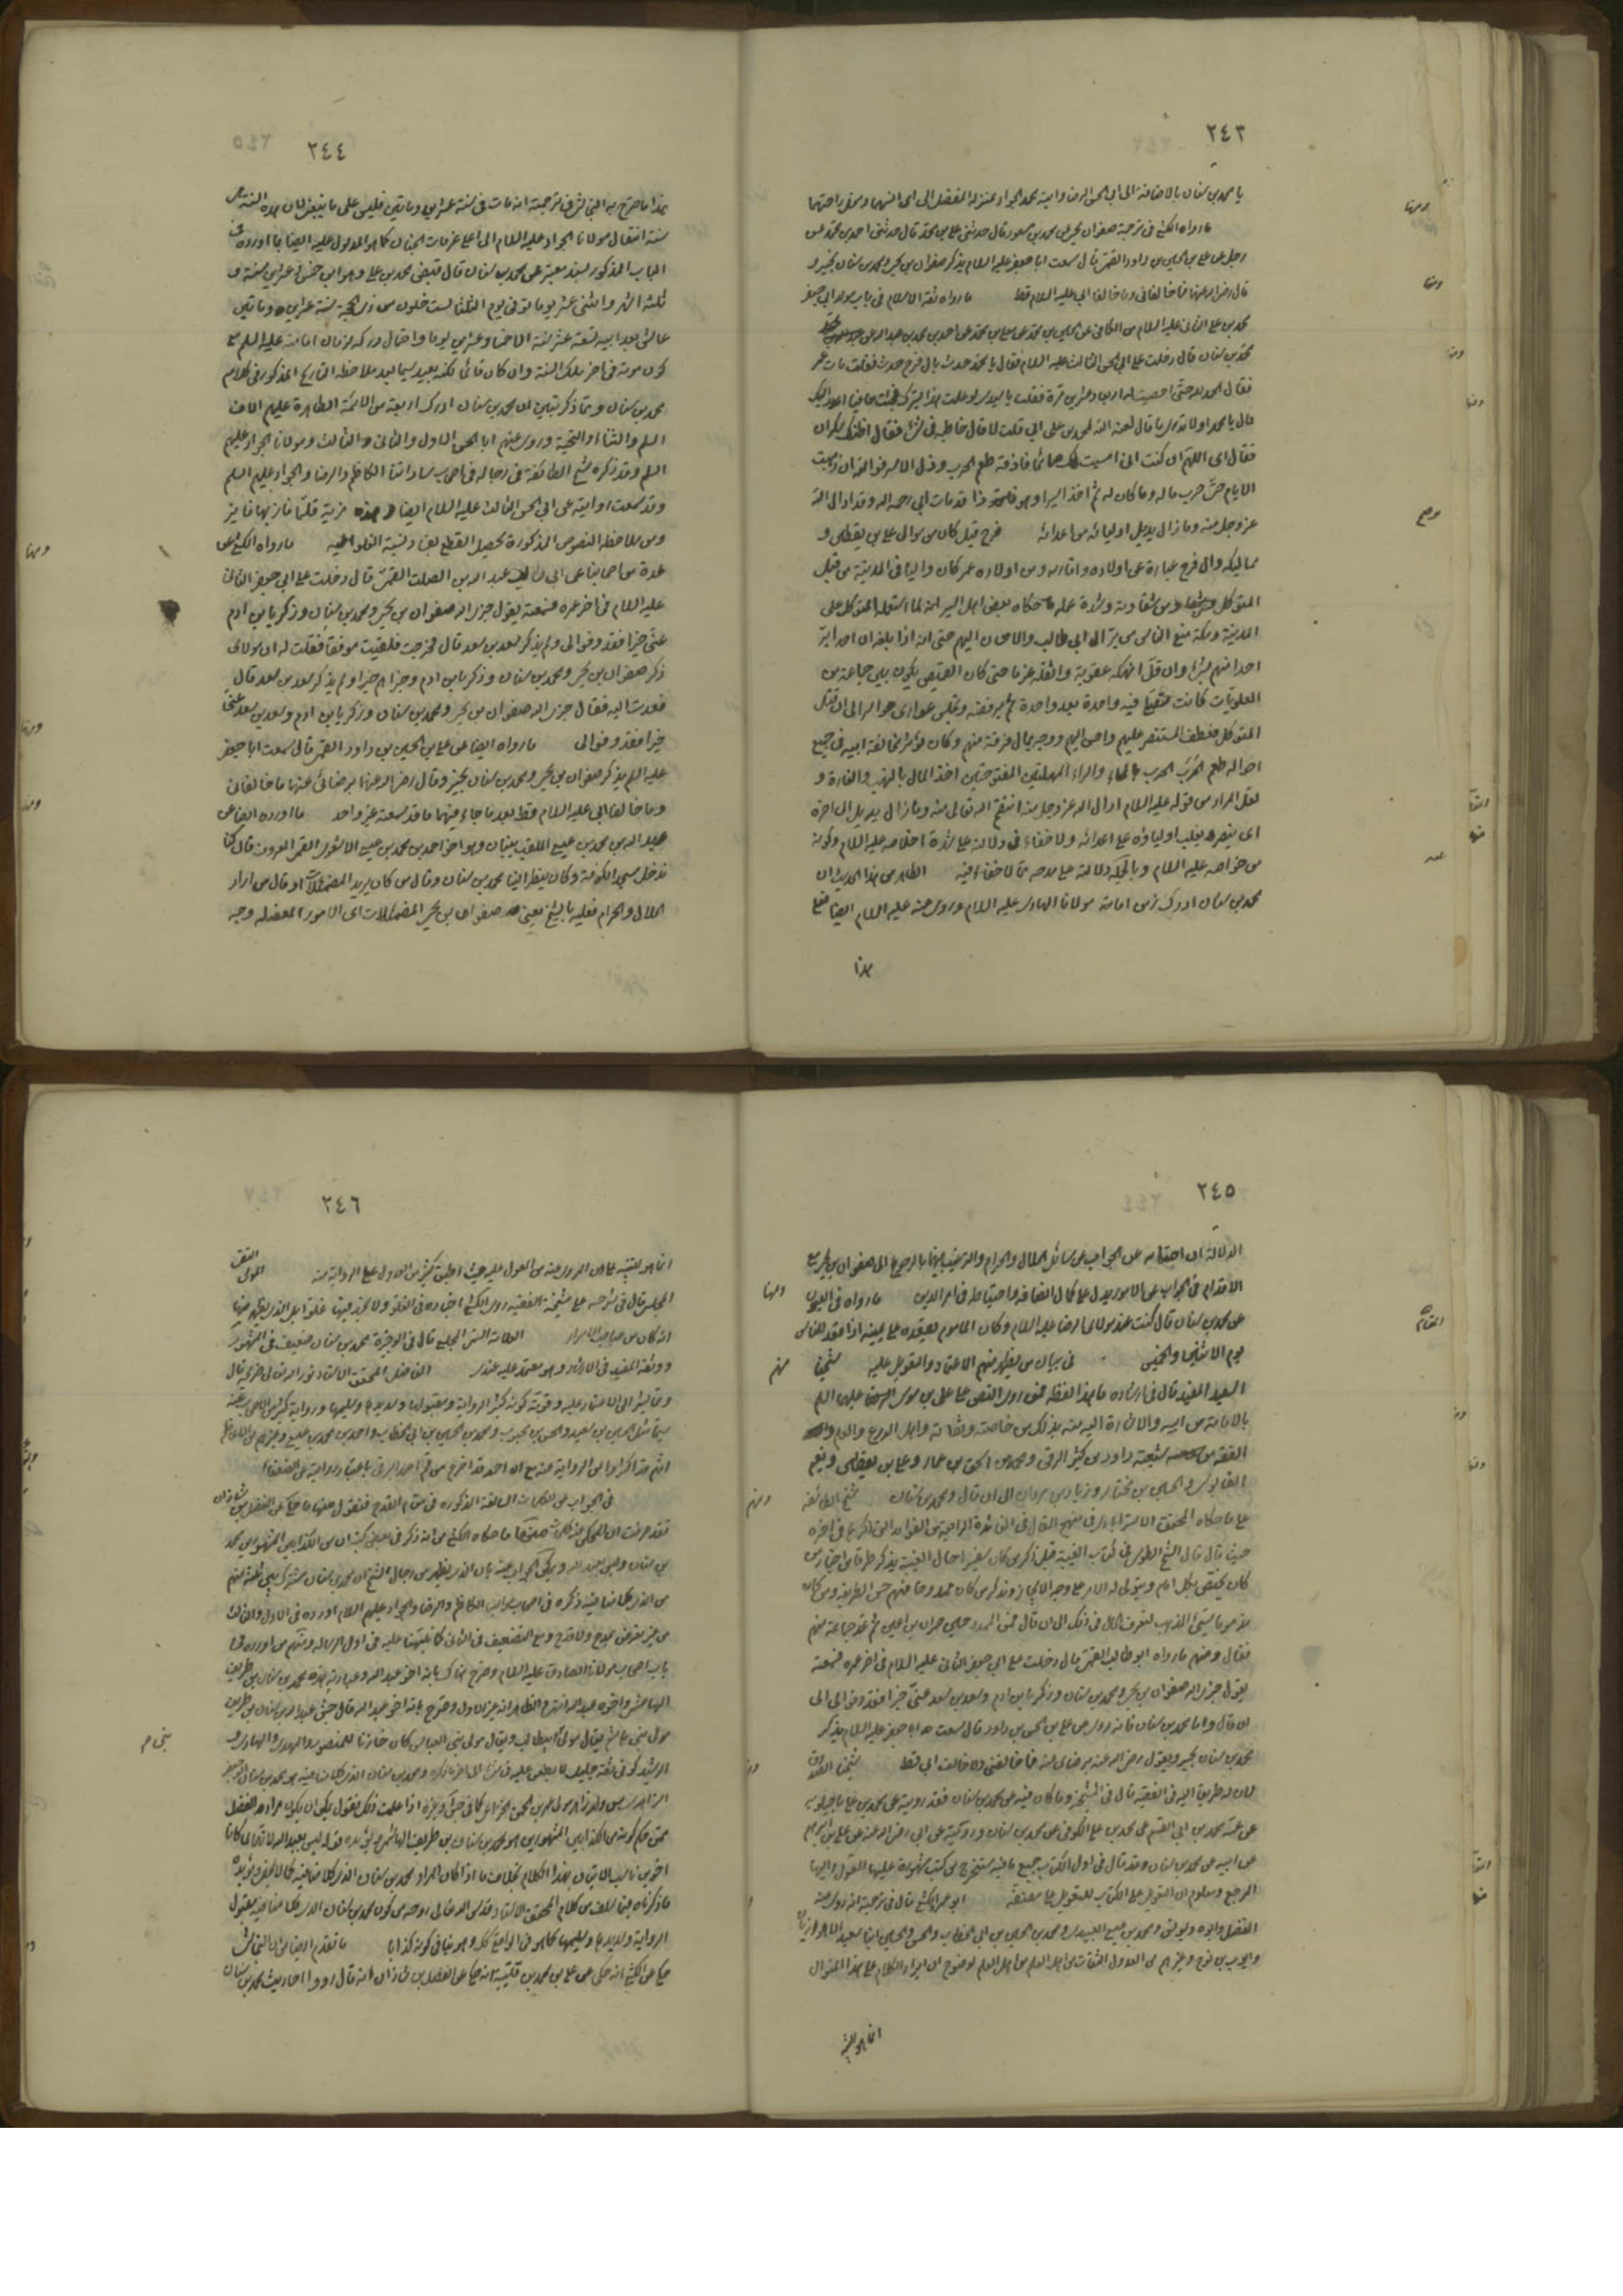 ٢٤٣
يا محمد بن سنان بالاضافة الى ابى الحسن الرضا وابنه محمد الجواد بمنزلة المفضل الى
ومنها
ما رواه الكشى فى ترجمة صفوان بن يحيى عن محمد بن مسعود قال حدثنى على بن محمد قال حدثنى احمد بن محمد عن
رجل عن على بن الحسين بن داود القمى قال سمعت ابا جعفر عليه السلام يذكر صفوان بن يحيى ومحمد بن سنان بخير و
قال رضى الله عنهما فما خالفانى وما خالفا ابى عليه السلام قط ما رواه ثقة الاسلام فى باب مولد ابى جعفر
ومنها
محمد بن على الثانى عليه السلام من الكافى عن الحسين بن محمد عن معلى بن محمد عن احمد بن محمد بن عبد الله عن
محمد بن سنان قال دخلت على ابى الحسن الثالث عليه السلام فقال يا محمد حدث بال فرج حدث فقلت مات عمر
فقال الحمد لله حتى احصيت له اربعا وعشرين مرة فقلت يا سيدى لو علمت ان هذا يسرك لجئت حافيا اعدو اليك
قال يا محمد اولا تدرى ما قال لعنه الله لمحمد بن على ابى قلت لا قال خاطبه فى شىء فقال اظنك سكران
فقال ابى اللهم ان كنت انى امسيت لك صائما فاذقه طعم الحرب وذل الاسر فوالله ان ذهبت
الايام حتى حرب ماله وما كان له ثم اخذ اسيرا وهو ذا قد مات لا رحمه الله وقد ادال الله
عز وجل منه وما زال يديل اولياءه من اعدائه فرج قيل كان من موالى على بن يقطين و
مماليكه وال فرج عبارة عن اولاده واقاربه ومن اولاده عمر كان واليا فى المدينة من قبل
المتوكل ومن شقاوته وشدة عمله ما حكاه بعض اهل السير انه لما استعمله المتوكل على
المدينة ومكة منع الناس من بر ال ابى طالب والاحسان اليهم حتى انه اذا بلغه ان احدا بر
احدا منهم بشىء وان قل انهكه عقوبة واثقله غرما حتى كان القميص يكون بين جماعة من
العلويات كانت تصلين فيه واحدة بعد واحدة ثم يرقعنه ويجلسن عوارى حواسر الى ان قتل
المتوكل فعطف المنتصر عليهم واحسن اليهم ووجه بمال فرقه منهم وكان يؤثر مخالفة ابيه فى جميع
احواله طعم الحرب الحرب بالحاء والراء المهملتين المفتوحتين اخذ المال بالنهب والغارة و
لعل المراد من قوله عليه السلام ادال الله عز وجل منه انتقم الله تعالى منه وما زال يديل الى اخره
اى ينصر ويغلب اولياؤه على اعدائه ولا خفاء فى دلالته على شدة اخلاصه عليه السلام وكونه
من خواصه عليه السلام وبالجملة دلالته على مدحه مما لا خفاء فيه الظاهر من هذا الحديث ان
محمد بن سنان ادرك زمن امامة مولانا الهادى عليه السلام وروى عنه عليه السلام ايضا فعلى
هذا
٢٤٤
هذا ما صرح به النجاشى فى ترجمته انه مات فى سنة عشرين ومأتين فليس على ما ينبغى لان هذه السنة
سنة انتقال مولانا الجواد عليه السلام الى اعلى غرفات الجنان كما هو المدلول عليه ايضا بما اورده فى
الباب المذكور بسند معتبر عن محمد بن سنان قال قبض محمد بن على وهو ابن خمس وعشرين سنة و
ثلثة اشهر واثنى عشر يوما توفى يوم الثلثا لست خلون من ذى الحجة سنة عشرين ومأتين
عاش بعد ابيه تسعة عشر سنة الا خمسا وعشرين يوما واحتمال دركه زمان امامته عليه السلام مع
كون موته فى اخر تلك السنة وان كان قائما لكنه بعيد سيما بعد ملاحظة التاريخ المذكور فى كلام
محمد بن سنان ومما ذكر تبين ان محمد بن سنان ادرك اربعة من الائمة الطاهرة عليهم الاف
السلم والثناء والتحية وروى عنهم ابا الحسن الاول والثانى والثالث ومولانا الجواد عليهم
السلم وقد ذكره شيخ الطائفة فى رجاله فى اصحاب ساداتنا الكاظم والرضا والجواد عليهم السلم
وقد سمعت روايته عن ابى الحسن الثالث عليه السلام ايضا وهذه مزية قلما فاز بها فايز
ومنها
ومن ملاحظة النصوص المذكورة يحصل القطع بفساد نسبة الغلو اليه ما رواه الكشى عن
عدة من اصحابنا عن ابى طالب عبد الله بن الصلت القمى قال دخلت على ابى جعفر الثانى
عليه السلام فى اخر عمره فسمعته يقول جزى الله صفوان بن يحيى ومحمد بن سنان وزكريا بن ادم
عنى خيرا فقد وفوا لى ولم يذكر سعد بن سعد قال فخرجت فلقيت موفقا فقلت له ان مولاى
ذكر صفوان بن يحيى ومحمد بن سنان وزكريا بن ادم وجزاهم خيرا ولم يذكر سعد بن سعد قال
فعدت اليه فقال جزى الله صفوان بن يحيى ومحمد بن سنان وزكريا بن ادم وسعد بن سعد عنى
ومنها
خيرا فقد وفوا لى ما رواه ايضا عن على بن الحسين بن داود القمى قال سمعت ابا جعفر
عليه السلم يذكر صفوان بن يحيى ومحمد بن سنان بخير وقال رضى الله عنهما برضائى عنهما ما خالفانى
ومنها
وما خالفا ابى عليه السلام قط بعد ما جاء فيهما ما قد سمعته غير واحد ما اورده ايضا عن
عبد الله بن محمد بن عيسى الملقب ببنان وهو اخو احمد بن محمد بن عيسى الاشعرى القمى المعروف قال كنا
ندخل مسجد الكوفة وكان ينظر الينا محمد بن سنان وقال من كان يريد المضمئلات او قال من اراد
الحلال والحرام فعليه بالشيخ يعنى صفوان بن يحيى المضمئلات اى الامور المعضلة وجه
٢٤٥
الدلالة ان احجامه عن الجواب عن مسائل الحلال والحرام والترغيب فيهما بالرجوع الى صفوان بن يحيى مع
ومنها
الاقدام فى الجواب عن الامور يدل على كمال انصافه واحتياطه فى امر الدين ما رواه فى العيون
عن محمد بن سنان قال كنت عند مولاى الرضا عليه السلام وكان المامون يقعده على يمينه اذا قعد للناس
يوم الاثنين والخميس فى بيان من يظهر منهم الاعتماد والتعويل عليه شيخنا
السعيد المفيد قال فى ارشاده ما هذا لفظه فممن روى النص على على بن موسى الرضا عليهما السلم
بالامامة من ابيه والاشارة اليه منه بذلك من خاصته وثقاته واهل الورع والعلم
والفقه من شيعته داود بن كثير الرقى ومحمد بن اسحق بن عمار وعلى بن يقطين ونعيم
القابوسى والحسين بن مختار وزياد بن مروان الى ان قال ومحمد بن سنان شيخ الطائفة
على ما حكاه المحقق الاسترابادى فى منهج المقال فى الفائدة الرابعة من الفوائد التى ذكرها فى اخره
حيث قال قال الشيخ الطوسى فى كتاب الغيبة قبل ذكر من كان سفيرا حال الغيبة يذكر طرفا من اخبار من
كان يختص بكل امام ويتولى له الامر على وجه الايجاز ونذكر من كان ممدوحا منهم حسن الطريقة ومن كان
مذموما سيئ المذهب ليعرف الحال فى ذلك الى ان قال فمن المحمودين حمران بن اعين ثم عد جماعة منهم
فقال ومنهم ما رواه ابو طالب القمى قال دخلت على ابى جعفر الثانى عليه السلام فى اخر عمره فسمعته
يقول جزى الله صفوان بن يحيى ومحمد بن سنان وزكريا بن ادم وسعد بن سعد عنى خيرا فقد وفوا لى الى
ان قال واما محمد بن سنان فانه روى عن على بن الحسين بن داود قال سمعت ابا جعفر عليه السلام يذكر
محمد بن سنان بخير ويقول رضى الله عنه برضائى عنه فما خالفنى ولا خالف ابى قط شيخنا الصدوق
لان له طريقا اليه فى الفقيه قال فى المشيخة وما كان فيه عن محمد بن سنان فقد رويته عن محمد بن على ماجيلويه
عن عمه محمد بن ابى القسم عن محمد بن على الكوفى عن محمد بن سنان ورويته عن ابى رضى الله عنه عن على بن ابرهيم
عن ابيه عن محمد بن سنان وقد قال فى اول الكتاب جميع ما فيه مستخرج من كتب مشهورة عليها المعول واليها
المرجع ومعلوم ان التعويل على الكتاب للتعويل على مصنفه ابو عمرو الكشى قال فى ترجمته انه روى عنه
الفضل وابوه ويونس ومحمد بن عيسى العبيدى ومحمد بن الحسين بن ابى الخطاب والحسن والحسين ابنا سعيد الاهوازيان
وايوب بن نوح وغيرهم من العدول الثقات من اهل العلم لوضوح ان ايراد الكلام على هذا المنوال
انما هو للتنبيه
٢٤٦
انما هو للتنبيه على ان المروى عنه من المعول عليه حيث اطبق كثير من العدول على الرواية عنه التقى المولى
المجلسى قال فى شرحه على مشيخة الفقيه روى الكشى اخباره فى الغلو ولا نجد فيها غلوا بل الذى يظهر منها
انه كان من اصحاب الاسرار العلامة السمى المجلسى قال فى الوجيزة محمد بن سنان ضعيف فى المشهور
ووثقه المفيد فى الارشاد وهو معتمد عليه عندى الفاضل المحقق الاستاد نور الله تعالى مرقده قال
ومما يشير الى الاعتماد عليه وقوته كونه كثير الرواية ومقبولها وسديدها وسليمها ورواية كثير من الاصحاب عنه
سيما مثل الحسين بن سعيد والحسن بن محبوب ومحمد بن الحسين بن ابى الخطاب واحمد بن محمد بن عيسى وغيرهم
انهم قد اكثروا من الرواية عنه مع ان احمد قد اخرج من قم احمد البرقى باعتبار روايته عن الضعفاء
فى الجواب عن الكلمات السالفة المذكورة فى مقام القدح فنقول منها ما حكى عن الفضل بن شاذان
فقد عرفت ان المحكى عنه ما حكاه الكشى من انه ذكر فى بعض كتبه ان من الكذابين المشهورين محمد
بن سنان وليس بعبد الله ويمكن الجواب عنه بان الذى يظهر من رجال الشيخ ان محمد بن سنان مشترك بين ثلثة منهم
من الذى كلامنا فيه ذكره فى اصحاب موالينا الكاظم والرضا والجواد عليهم السلام اورده فى الاول والثالث
من غير تعرض بمدح ولا قدح ومع التضعيف فى الثانى كما نبهنا عليه فى اول الرسالة ومنهم من اورده فى
باب اصحاب مولانا الصادق عليه السلام وصرح هناك بانه اخو عبد الله وعبارته هذه محمد بن سنان بن طريف
الهاشمى واخوه عبد الله انتهى والظاهر انه غير الاول وصرح بانه اخى عبد الله قال جش عبد الله بن سنان بن طريف
مولى بنى هاشم يقال مولى ابيطالب ويقال مولى بنى العباس كان خازنا للمنصور والمهدى والهادى و
الرشيد كوفى ثقة جليل لا يطعن عليه فى شىء الى اخر ما ذكره ومحمد بن سنان الذى كلامنا فيه هو محمد بن سنان ابو جعفر
الزاهرى من ولد زاهر مولى عمرو بن الحمق الخزاعى كما فى جش وغيره اذا علمت ذلك نقول يمكن ان يكون مراد الفضل
ممن حكم كونه من الكذابين المشهورين هو محمد بن سنان بن طريف الهاشمى ويؤيده قوله ليس بعبد الله لانهما كانا
اخوين ناسب الاتيان بهذا الكلام بخلاف ما اذا كان المراد محمد بن سنان الذى كلامنا فيه كما لا يخفى ويؤيده
ما ذكرناه فيما سلف من كلام المحقق الاستاد قدس الله تعالى روحه من كون محمد بن سنان الذى كلامنا فيه مقبول
الرواية وسديدها وسليمها كما هو فى الواقع كك وهو ينافى كونه كذابا ما تقدم ايضا من ان النجاشى
حكى عن الكشى انه حكى عن على بن محمد بن قتيبة انه حكى عن الفضل بن شاذان انه قال ردوا احاديث محمد بن سنان